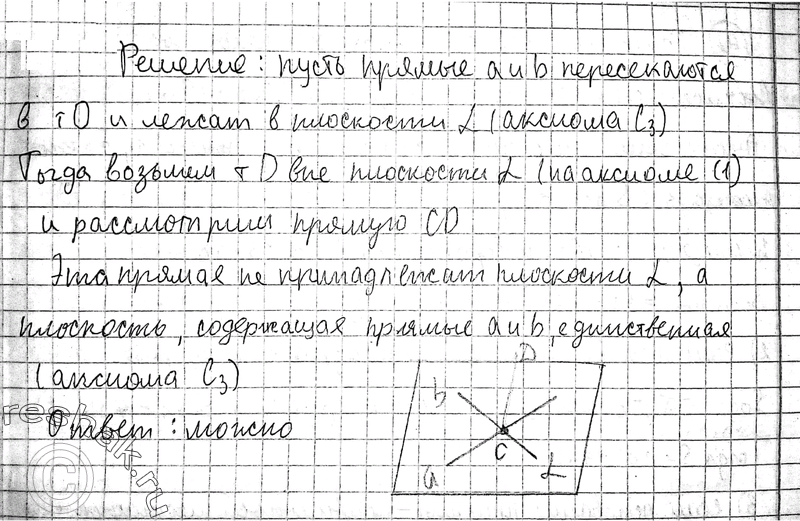 Решение: пусть прямые a и b пересекаются
в т О и лежат в плоскости L (аксиома C3)
Тогда возьмем т D вне плоскости L (по аксиоме C1)
и рассмотрим прямую CD
Эта прямая не принадлежат плоскости L, а
плоскость, содержащая прямые a и b, единственная
(аксиома C3)
Ответ: можно
D
b
C
a
L
reshak.ru
©